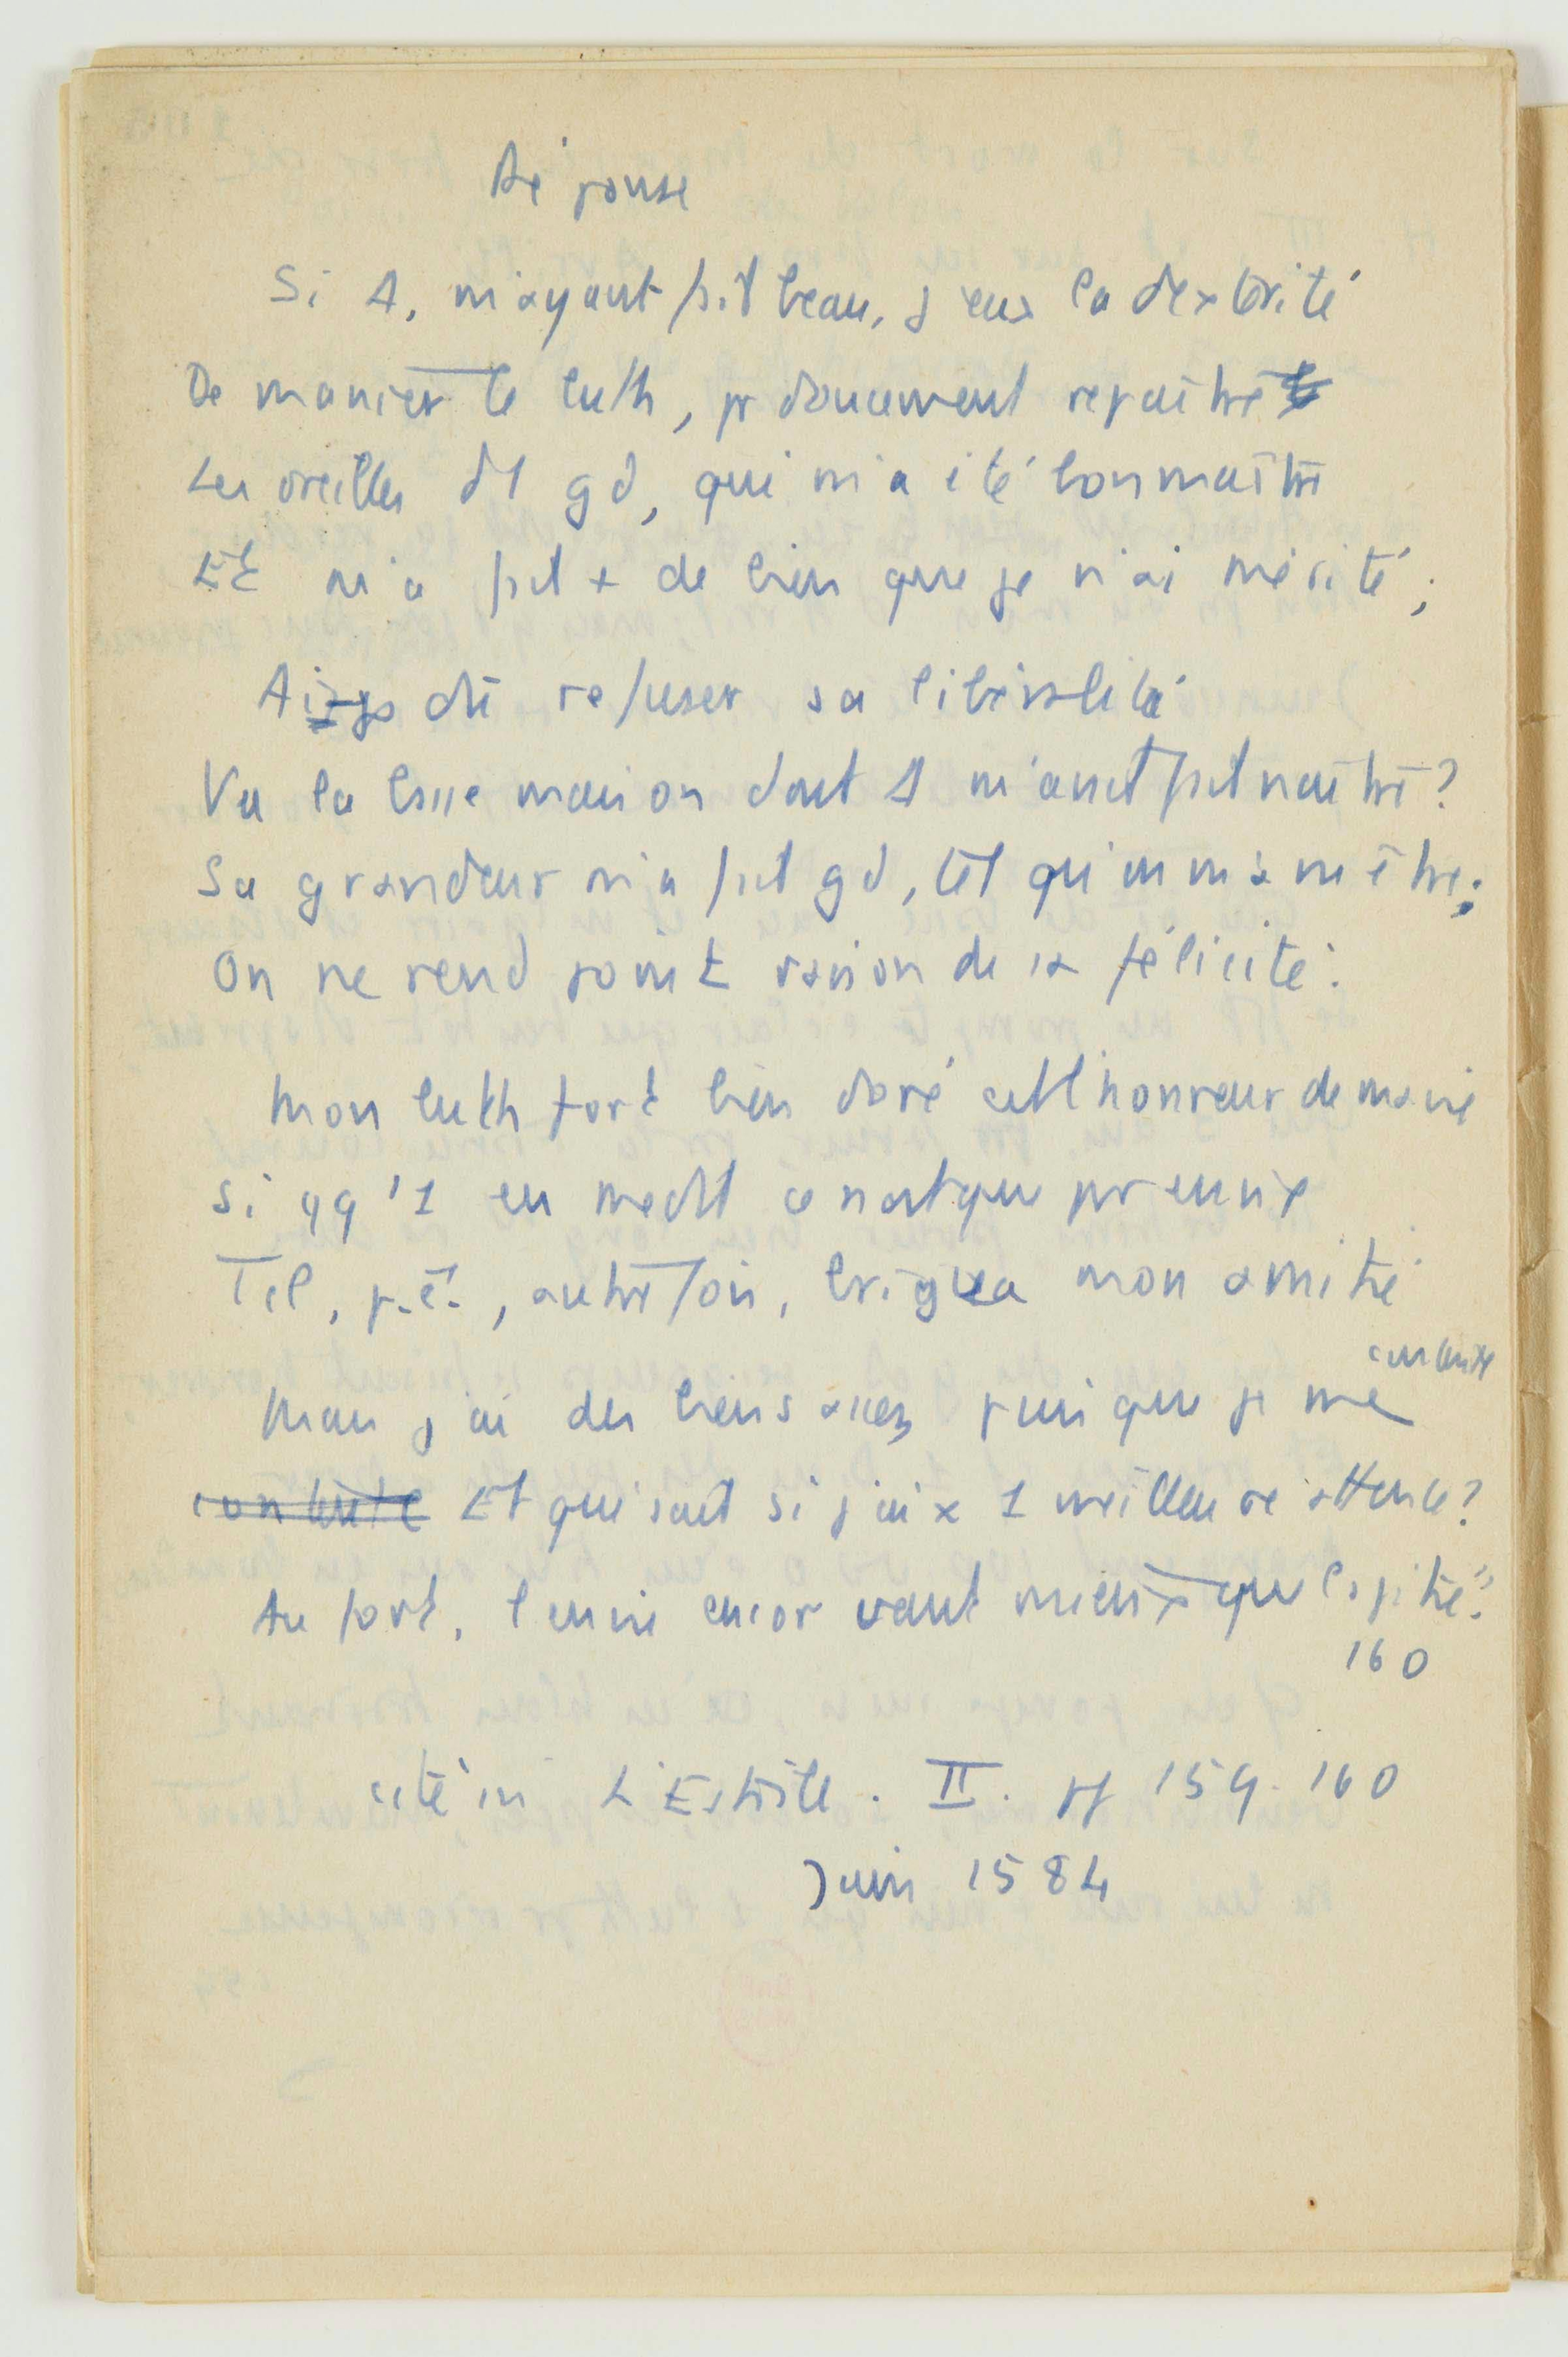 Réponse
Si Δ, m'ayant fait beau, j'eus la dextérité
De manier le luth, pr doucement repaître
Les oreilles d'1 gd, qui m'a été bon maître
Et m'a fait + de bien que je n'ai mérité ;
Ai-je dû refuser sa libéralité
Vu la basse maison dont Δ m'avait fait naître ?
Sa grandeur m'a fait gd, tel qu'on m'a vu être ;
On ne rend point raison de sa félicité.
Mon luth fort bien doré est l'honneur de ma vie
Si qq'1 en médit ce n'est que pr envie
Tel, p.ê., autrefois, brigua mon amitié
contente
Mais j'ai des biens assez, puisque je me
contente Et qui sait si j'ai x 1 meilleure attente ?
Au fort, l'envie encor vaut mieux que la pitié."
160
cité in L'Estoile. II. pp 159-160
Juin 1584